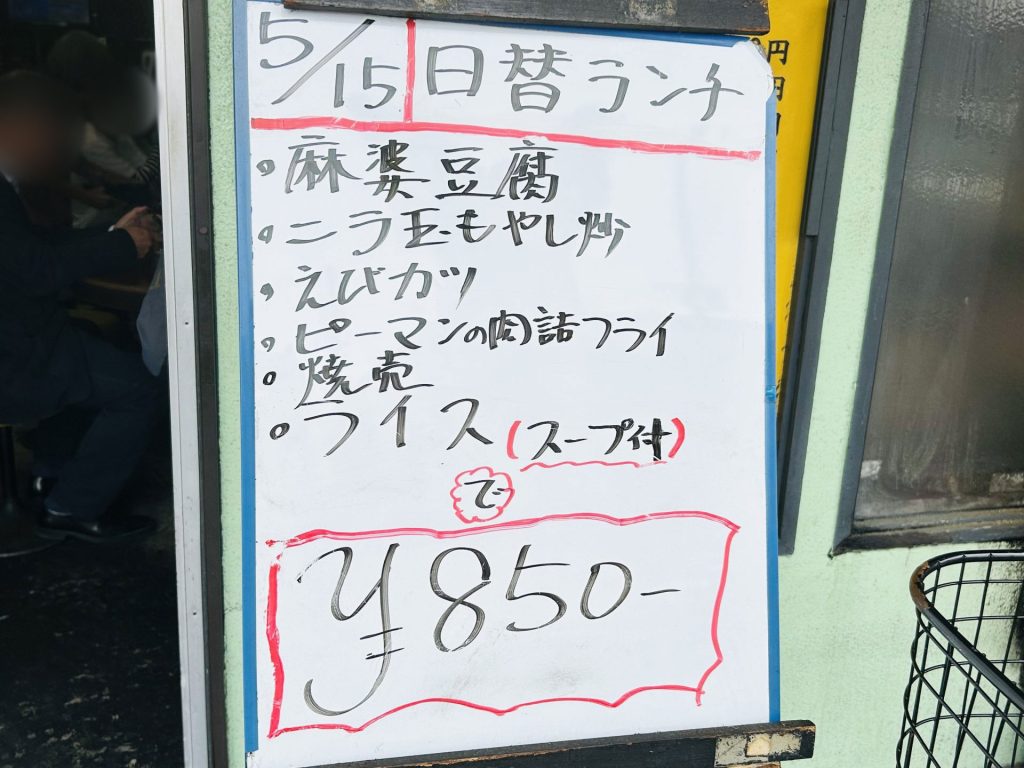 5/15 日替ランチ
。麻婆豆腐
。ニラ玉もやし炒
。えびカツ
。ピーマンの肉詰フライ
。焼売
。ライス(スープ付)
で
¥850-
円
円